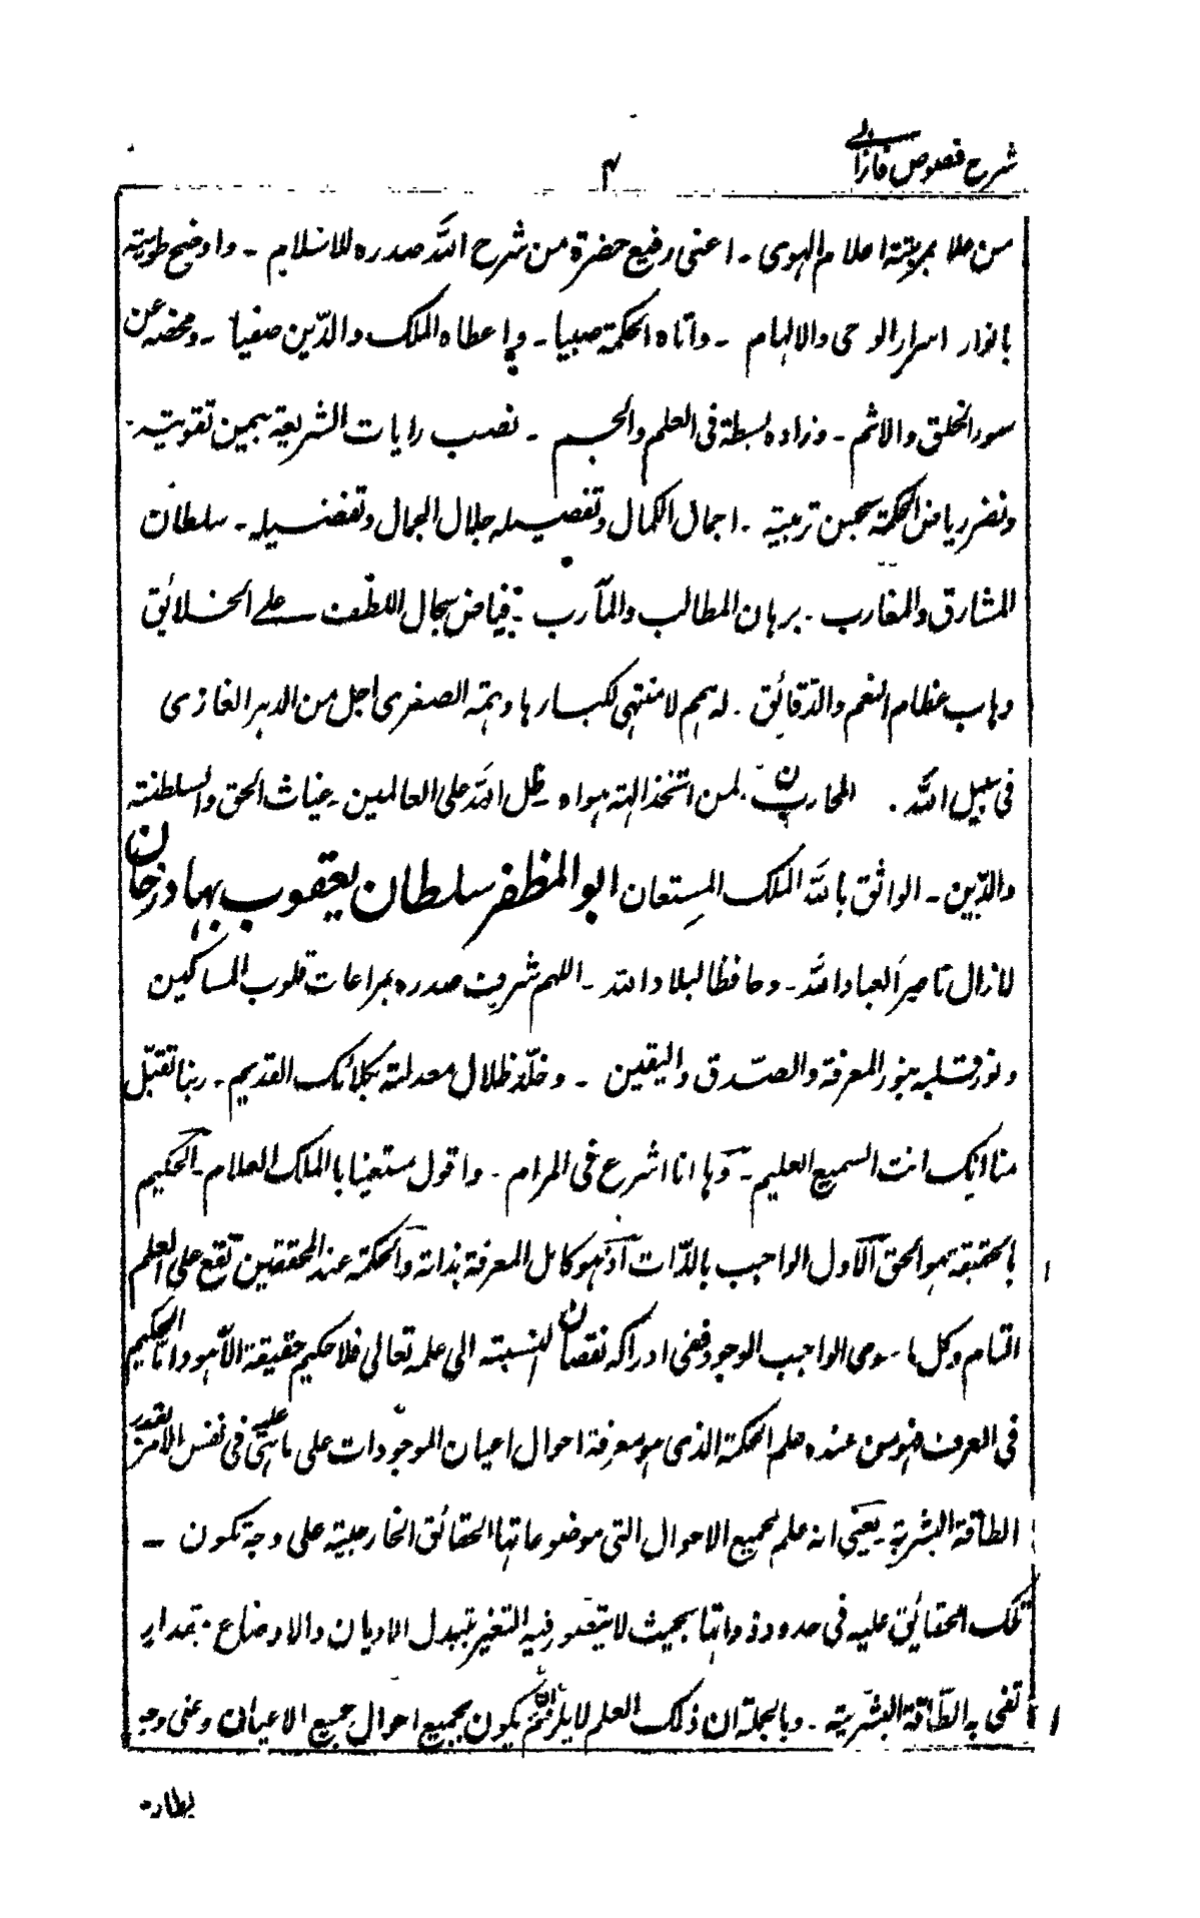 شرح فصوص فارابی
۴
من علا بمریته اعلام الهوى - اعنى رفيع حضرة من شرح الله صدره للاسلام - واوضح طويته
بانوار اسرار الوحى والالهام - واتاه الحكمة صبيا - واعطاه الملك والدّين صفيا - ومحضه عن
سوء الخلق والاثم - وزاده بسطة فى العلم والجسم - نصب رايات الشريعة بيمين تقويته -
ونضر رياض الحكمة بحسن تربيته - اجمال الكمال وتفصيله جلال الجمال وتفضيله - سلطان
المشارق والمغارب - برهان المطالب والمآرب - فياض سجال اللطف على الخلائق
وهاب عظام النعم والدّقائق - له همم لا منتهى لكبارها وهمته الصغرى اجل من الدهر الغازى
فى سبيل الله - المحارب لمن اتخذ الهه هواه - ظل الله على العالمين - غياث الحق والسلطنته
والدّين - الواثق بالله الملك المستعان ابو المظفر سلطان يعقوب بهادر خان
لازال ناصر العباد الله - وحافظا لبلاد الله - اللهم شرف صدره بمراعات قلوب المساكين
ونور قلبه بنور المعرفة والصّدق واليقين - وخلّد ظلال معدلته بكلائك القديم - ربنا تقبّل
منا انك انت السميع العليم - وها انا اشرع فى المرام - واقول مستعينا بالملك العلام - الحكيم
بالحقيقة هو الحق الاول الواجب بالذّات اذ هو كامل المعرفة بذاته والحكمة عند المحققين تقع على العلم
التام وكل ما سوى الواجب الوجود ففى ادراكه نقصان بالنسبته الى علمه تعالى فلا حكيم حقيقة الا هو واما الحكيم
فى العرف فهو من عنده علم الحكمة الذى هو معرفة احوال اعيان الموجودات على ما هى عليه فى نفس الامر بقدر
الطاقة البشرية يعنى انه علم بجميع الاحوال التى موضوعاتها الحقائق الخارجية على وجه تكون -
تلك الحقائق عليه فى حدود ذواتها بحيث لا يتصور فيه التغير بتبدل الاديان والاوضاع - بمقدار
تفى به الطّاقة البشرّية - وبالجملة ان ذلك العلم لا يلزم ان يكون بجميع احوال جميع الاعيان وعلى وجه
يطابق